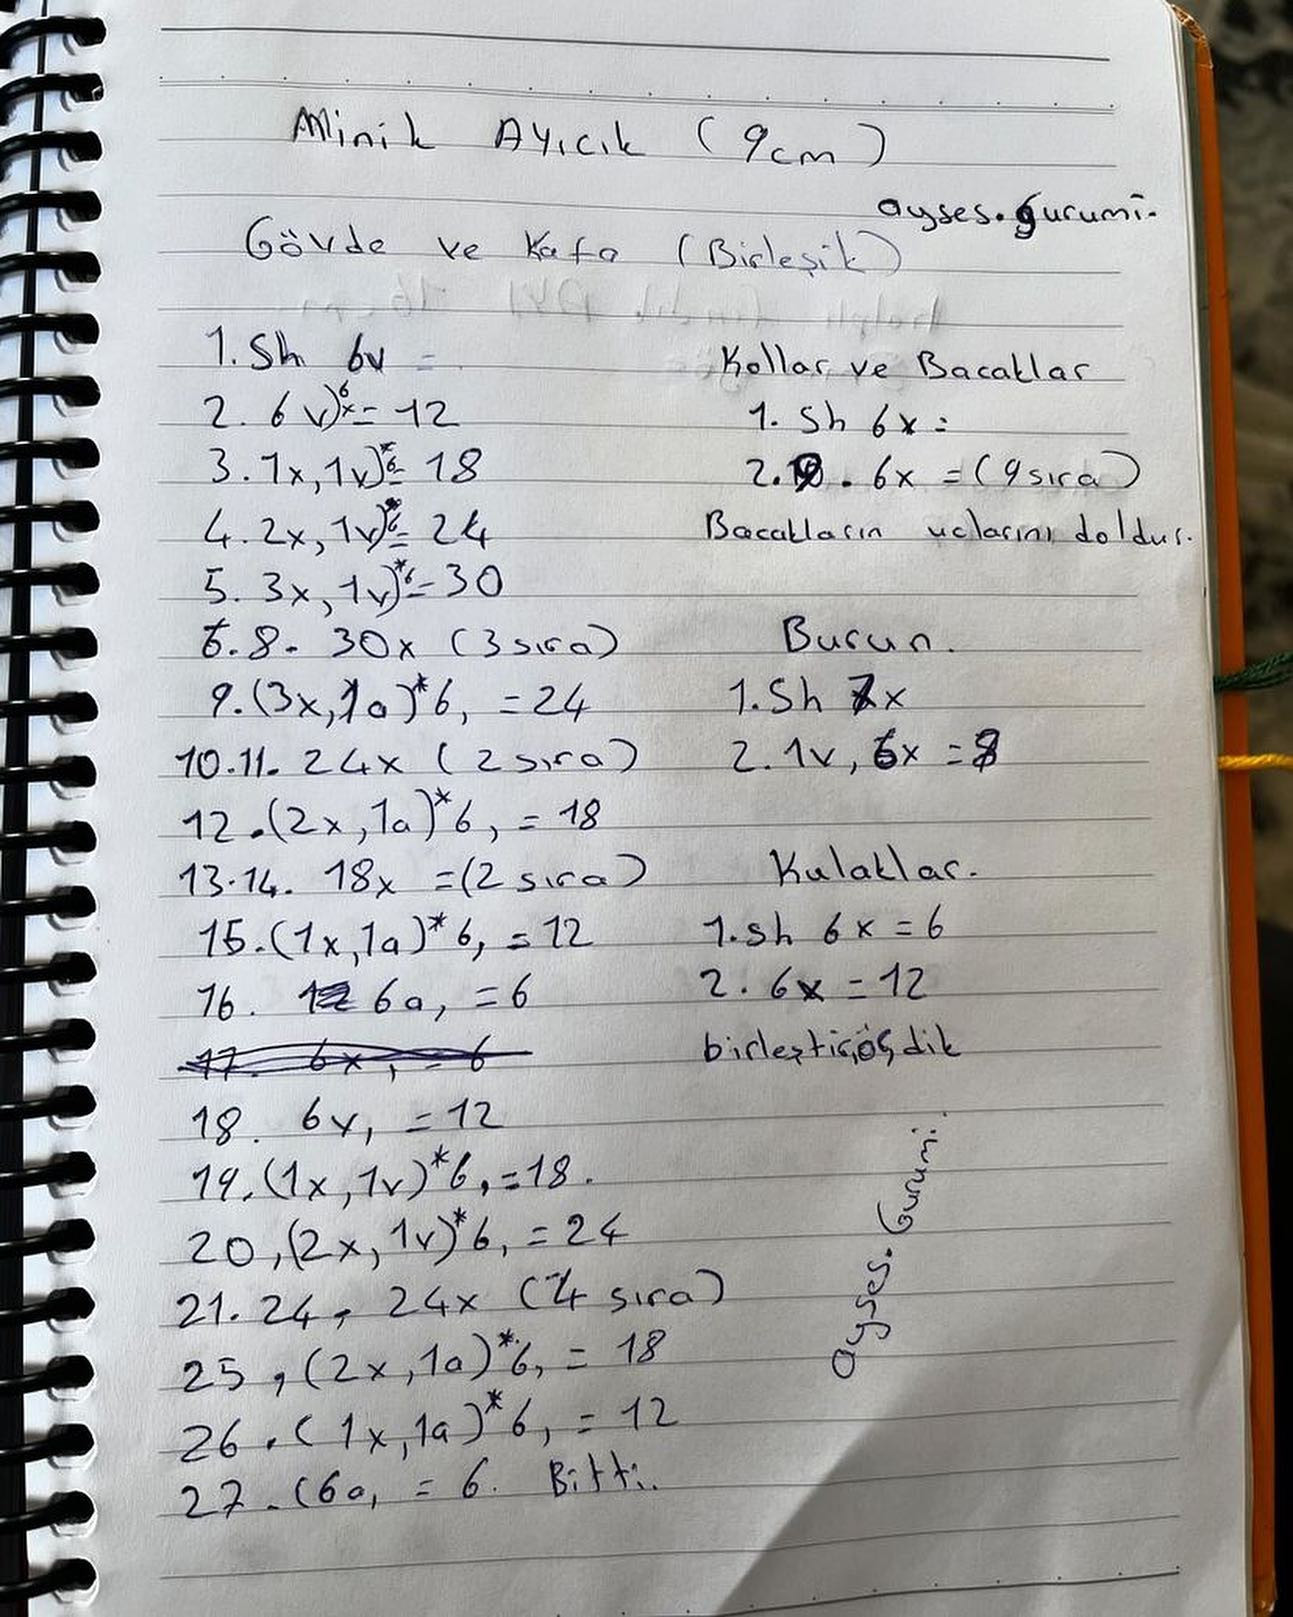 Minik Ayıcık (9cm)
ayses.gurumi.
Gövde ve Kafa (Birleşik)
1. Sh 6v =
2. 6v)*6 = 12
3. 1x, 1v)*6 = 18
4. 2x, 1v)*6 = 24
5. 3x, 1v)*6 = 30
6.8. 30x (3 sıra)
9. (3x, 1a)*6, = 24
10.11. 24x (2 sıra)
12. (2x, 1a)*6, = 18
13.14. 18x = (2 sıra)
15. (1x, 1a)*6, = 12
16. 6a, = 6
17. 6x, = 6
18. 6v, = 12
19. (1x, 1v)*6, = 18.
20, (2x, 1v)*6, = 24
21.24, 24x (4 sıra)
25, (2x, 1a)*6, = 18
26. (1x, 1a)*6, = 12
27. (6a, = 6. Bitti.
Kollar ve Bacaklar
1. Sh 6x =
2.9. 6x = (9 sıra)
Bacakların uclarını doldur.
Burun.
1. Sh 7x
2. 1v, 6x = 8
Kulaklar.
1. sh 6x = 6
2. 6x = 12
birleştir, ör, dik
Ayses.Gurumi.